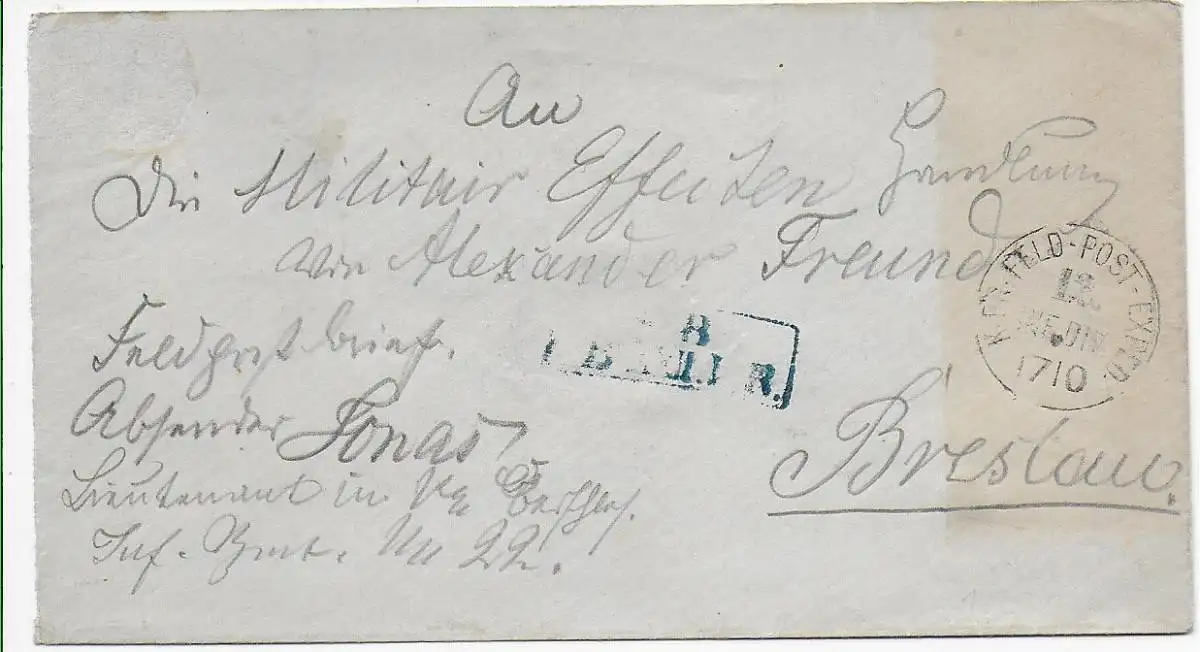 An
Die Militair Effecten Handlung
von Alexander Freund
Feldpostbrief.
Absender Jonas,
Lieutenant im
Inf. Rgmt. No 22.
Breslau.
K.PR.FELD-POST-EXPED.
12.
INF.DIV.
17 10